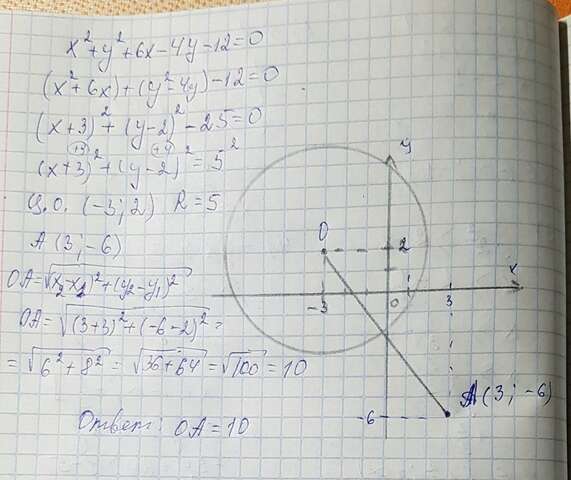 x²+y²+6x-4y-12=0
(x²+6x)+(y²-4y)-12=0
(x+3)²+(y-2)²-25=0
(x+3)²+(y-2)²=5²
Ц.О. (-3;2) R=5
A (3;-6)
OA=√(x₂-x₁)²+(y₂-y₁)²
OA=√(3+3)²+(-6-2)²=
=√6²+8²=√36+64=√100=10
Ответ: OA=10
y
O
2
x
-3
0
1
3
A(3;-6)
-6